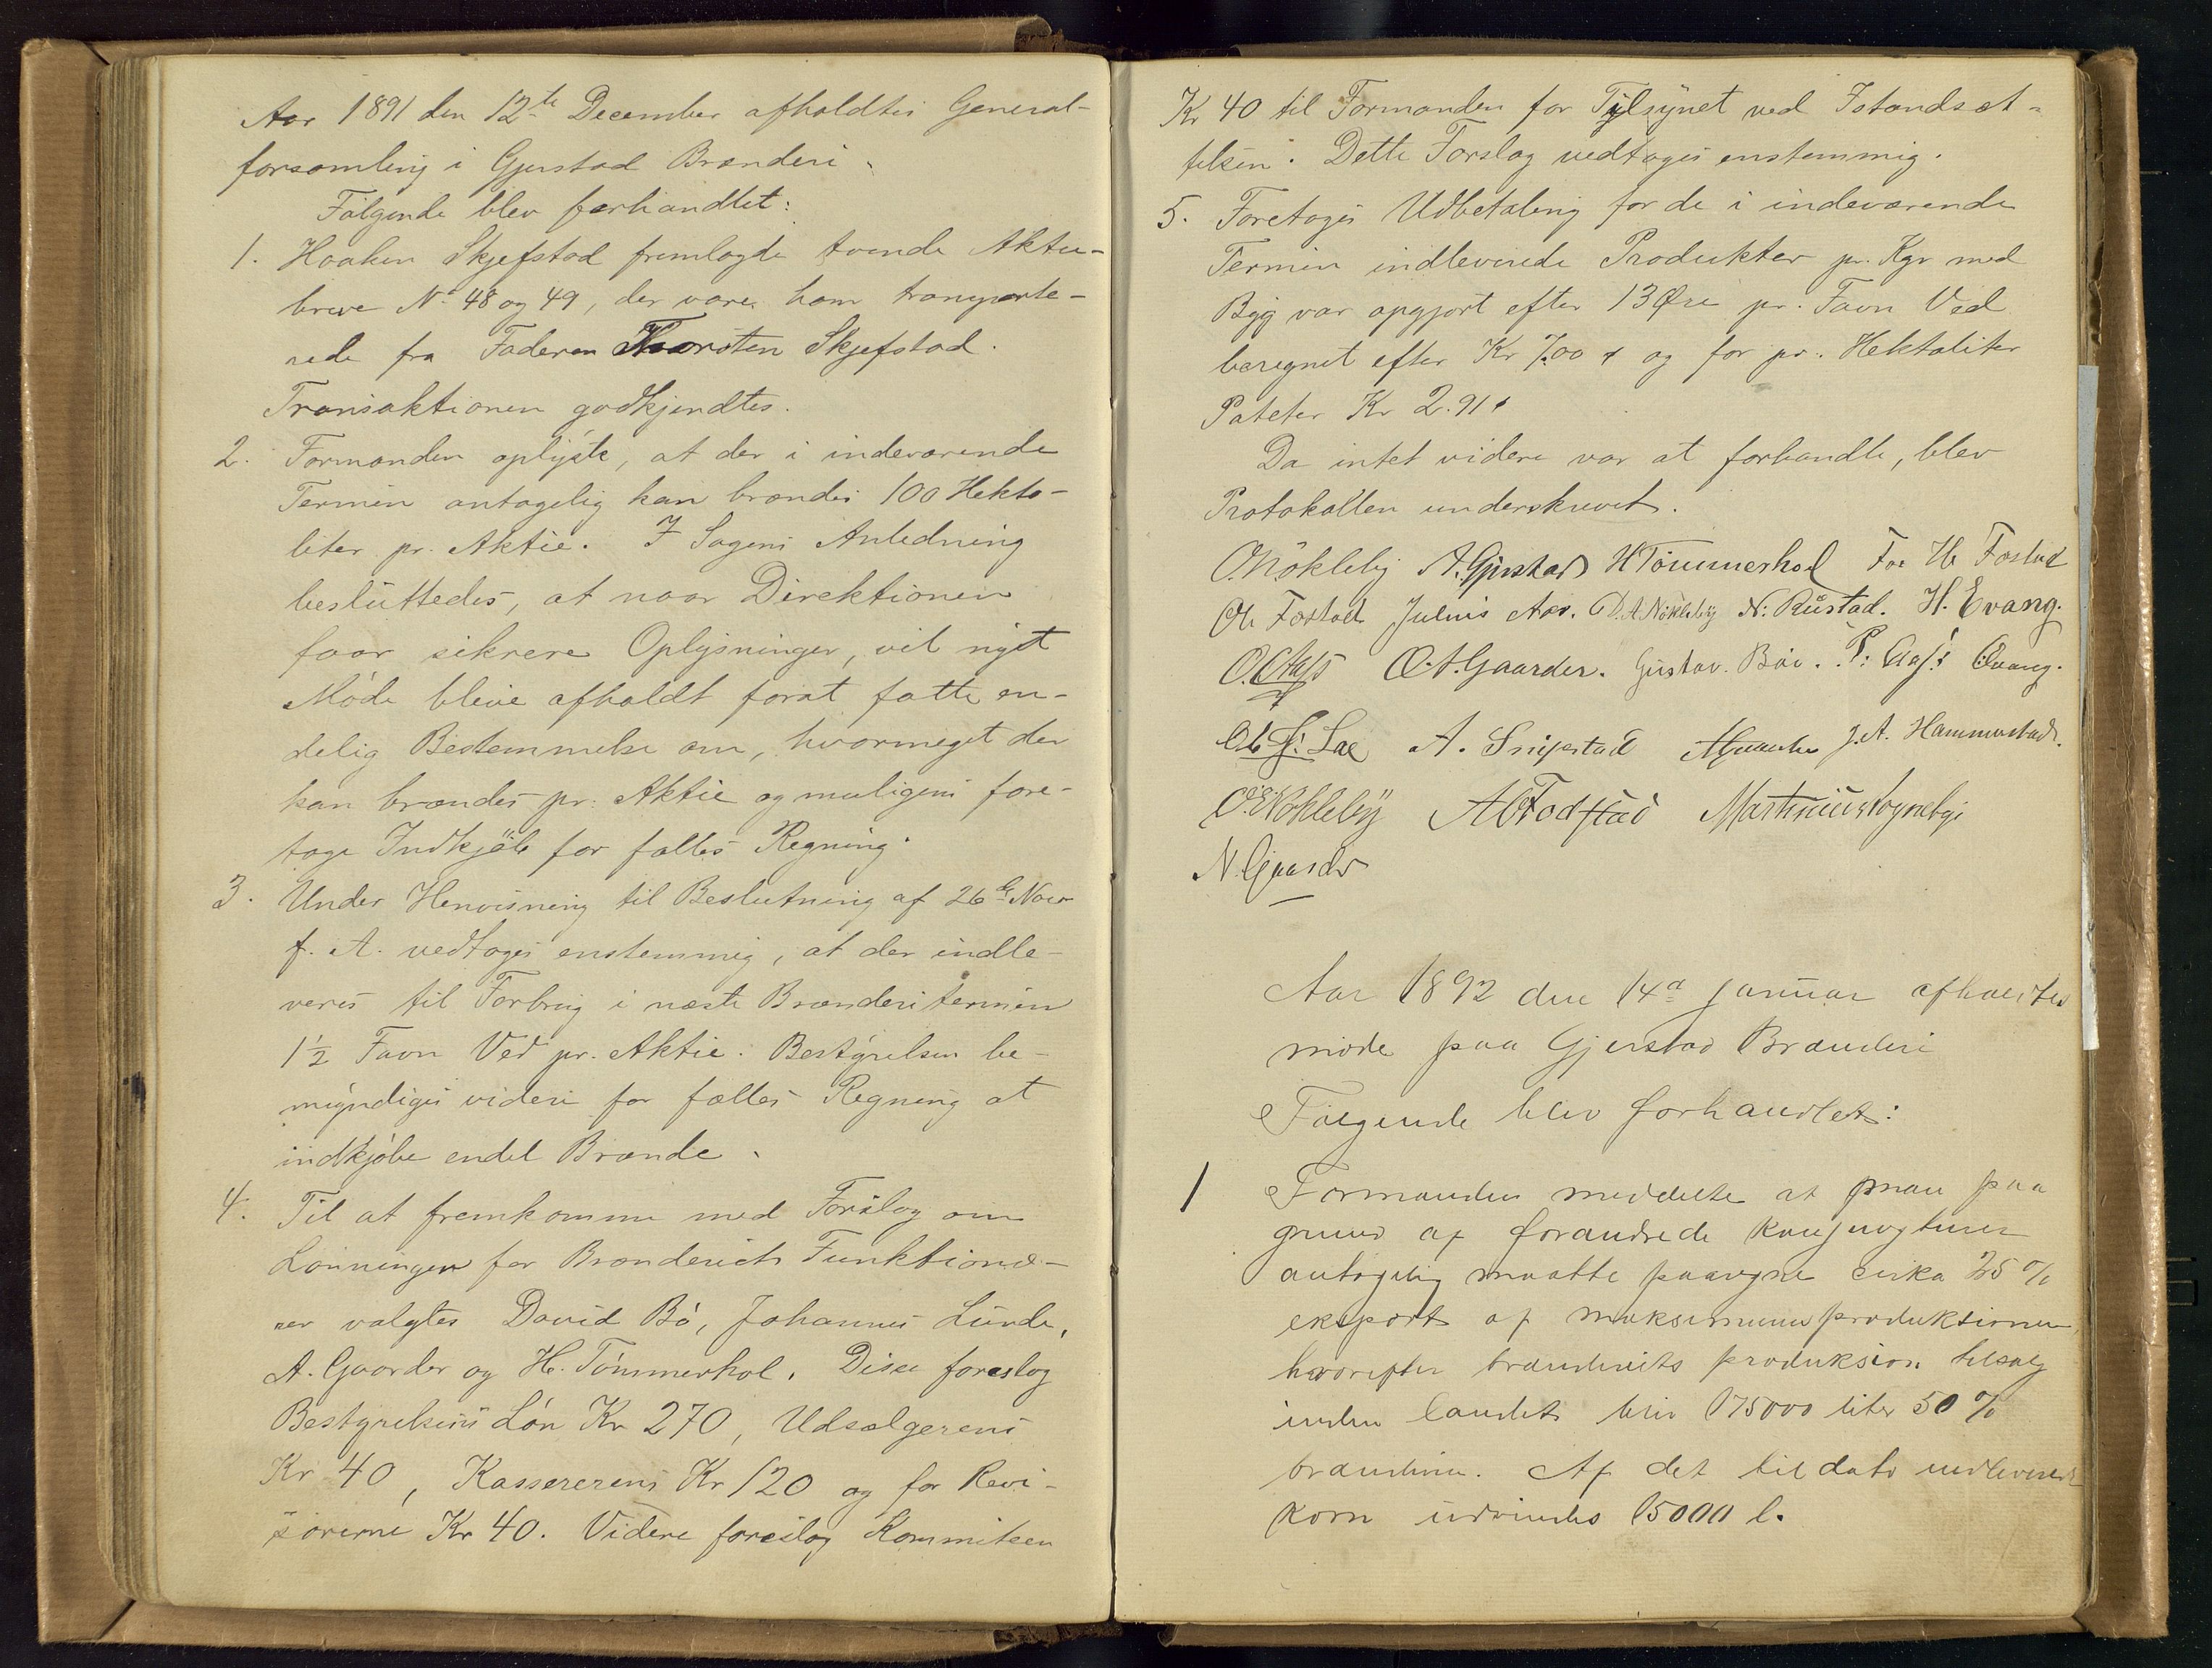 Aar 1891 den 12te December afholdtes General-
forsamling i Gjerstad Brænderi.
Følgende blev forhandlet:
1. Haaken Skjefstad fremlagde tvende Aktie-
breve No 48 og 49, der vare ham transporte-
rede fra Faderen Thorsten Skjefstad.
Transaktionen godkjendtes.
2. Formanden oplyste, at der i indeværende
Termin antagelig kan brændes 100 Hekto-
liter pr. Aktie. I Sagens Anledning
besluttedes, at naar Direktionen
faar sikrere Oplysninger, vil nyt
Møde blive afholdt forat fatte en-
delig Bestemmelse om, hvormeget der
kan brændes pr. Aktie og muligens fore-
tage Indkjøb for fælles Regning.
3. Under Henvisning til Beslutning af 26de Novr
f. A. vedtoges enstemmig, at der indle-
veres til Forbrug i næste Brænderitermin
1½ Favn Ved pr. Aktie. Bestyrelsen be-
myndiges videre for fælles Regning at
indkjøbe endel Brænde.
4. Til at fremkomme med Forslag om
Lønningen for Brænderiets Funktionæ-
rer valgtes David Bø, Johannes Lunde,
A. Gaarder og H. Tømmerhol. Disse foreslog
Bestyrelsens Løn Kr 270, Udsælgerens
Kr 40, Kassererens Kr 120 og for Revi-
sorerne Kr 40. Videre foreslog Kommiteen
Kr 40 til Formanden for Tilsynet ved Istandsæt-
telsen. Dette Forslag vedtoges enstemmig.
5. Foretoges Udbetaling for de i indeværende
Termin indleverede Produkter pr. Kgr med
Byg var opgjort efter 13 Øre pr. Favn Ved
beregnet efter Kr 7.00 og for pr. Hektoliter
Poteter Kr 2.91.
Da intet videre var at forhandle, blev
Protokollen underskrevet.
O. Nökleby A. Gjerstad H Tömmerhol For H. Fostad
Ole Fostad Julius Aas. D. A. Nökleby N. Rustad. H. Evang.
O. Aas O. A. Gaarder. Gustav. Böe. P. Aas. Evang.
Ole J. Lae A. Snipstad J. A. Hammerstad.
O. E. Nökleby A Fodstad Martinius Sogneby
N. Gaarder
Aar 1892 den 14de januar afholdtes
møde paa Gjerstad Brænderi
Følgende blev forhandlet:
1 Formanden meddelte at man paa
grund af forandrede konjungturer
antagelig maatte paaregne cirka 25 %
eksport af maksimumsproduktionen,
hvorefter brænderiets produksion tilsalg
inden landet blir 175000 liter 50 %
brændevin. Af det til dato indleverede
korn udvindes 15000 l.